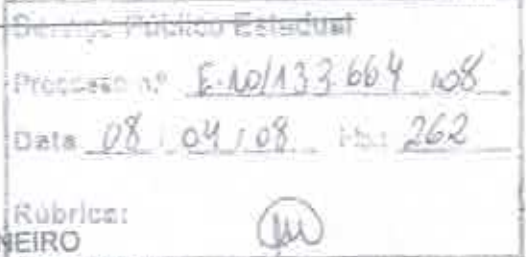 Serviço Público Estadual
Processo n.º E-10/133.664 /08
Data 08 / 04 / 08 Fls.: 262
Rúbrica:
NEIRO